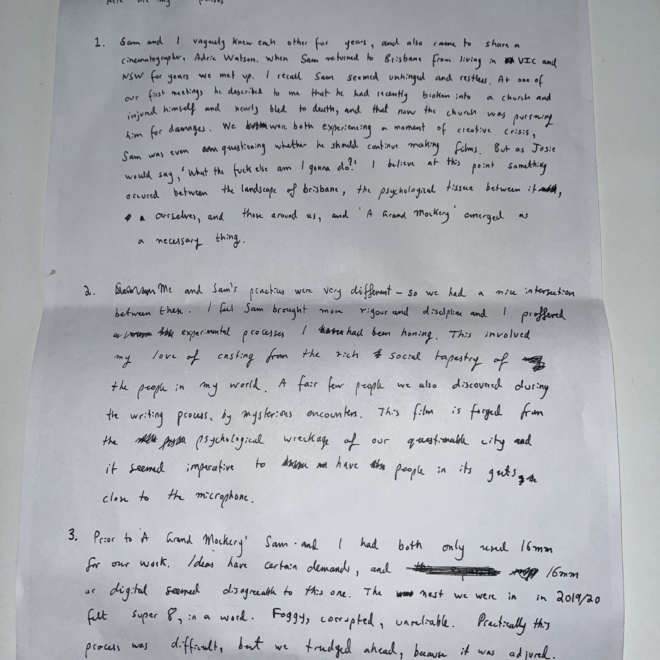 Here are my
1. Sam and I vaguely knew each other for years, and also came to share a
cinematographer, Adric Watson. When Sam returned to Brisbane from living in VIC and
NSW for years we met up. I recall Sam seemed unhinged and restless. At one of
our first meetings he described to me that he had recently broken into a church and
injured himself and nearly bled to death, and that now the church was pursuing
him for damages. We were both experiencing a moment of creative crisis,
Sam was even questioning whether he should continue making films. But as Josie
would say, 'What the fuck else am I gonna do?' I believe at this point something
occured between the landscape of brisbane, the psychological tissue between it,
ourselves, and those around us, and 'A Grand Mockery' emerged as
a necessary thing.
2. Me and Sam's practices were very different – so we had a nice intersection
between them. I feel Sam brought more rigour and discipline and I proffered
experimental processes I had been honing. This involved
my love of casting from the rich social tapestry of
the people in my world. A fair few people we also discovered during
the writing process, by mysterious encounters. This film is forged from
the psychological wreckage of our questionable city and
it seemed imperative to have people in its guts
close to the microphone.
3. Prior to 'A Grand Mockery' Sam and I had both only used 16mm
for our work. Ideas have certain demands, and 16mm
or digital seemed disagreeable to this one. The nest we were in in 2019/20
felt super 8, in a word. Foggy, corrupted, unreliable. Practically this
process was difficult, but we trudged ahead, because it was adjured.